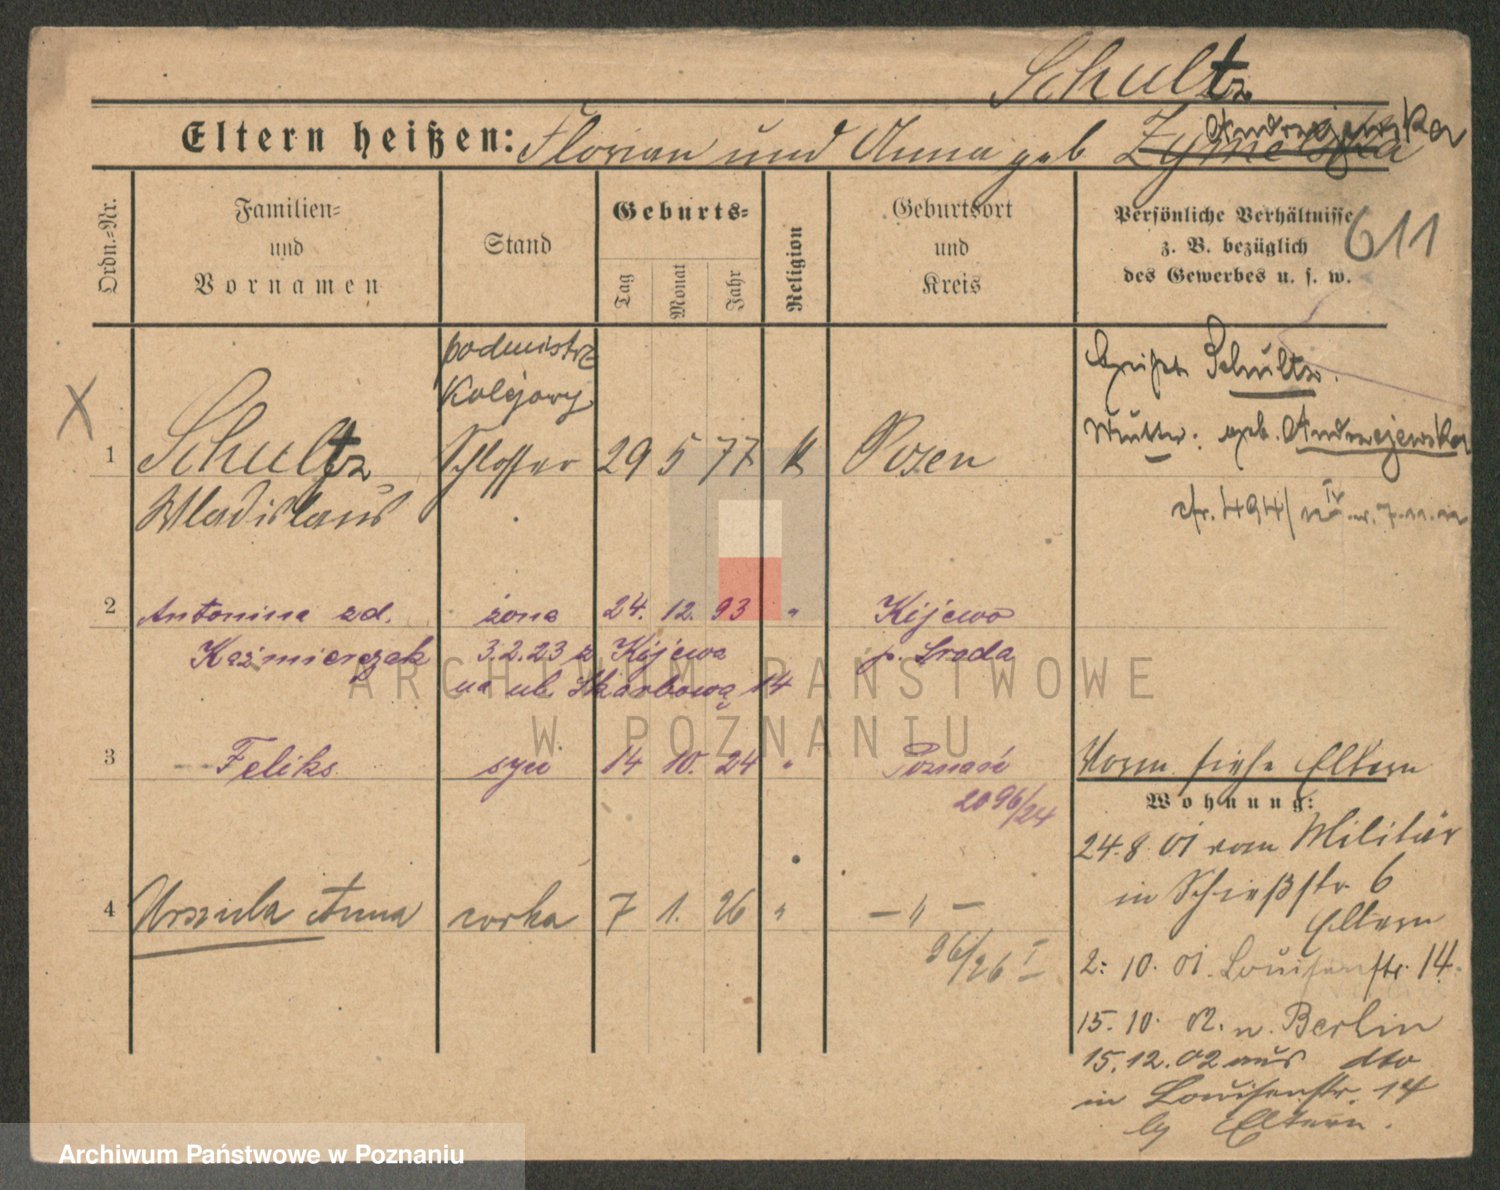 Schultz
Eltern heißen: Florian und Anna geb Zymelska Andrzejewska
Ordn.-Nr.
Familien-
und
Vornamen
Stand
Geburts-
Tag
Monat
Jahr
Religion
Geburtsort
und
Kreis
Persönliche Verhältnisse
z. B. bezüglich
des Gewerbes u. s. w.
611
podmistrz
Kolejowy
X
1 Schultz Schlosser 29 5 77 K Posen
Wladislaus
heißt Schultz.
Mutter: geb. Andrzejewska
cfr. 494/
2 Antonina zd. żona 24. 12. 93 " Kijewo
Kaźmierczak 3.2.23 z Kijewa p. Środa
na ul. Skarbową 14
3 Feliks syn 14 10. 24 " Poznań
2096/24
4 Urszula Anna córka 7 1. 26 " — " —
96/26 I
Vorm siehe Eltern
Wohnung:
24.8.01 vom Militär
in Schießstr. 6
Eltern
2. 10. 01. Louisenstr. 14.
15. 10. 02. n. Berlin
15.12.02 aus dto
in Louisenstr. 14
b/ Eltern.
ARCHIWUM PAŃSTWOWE
W POZNANIU
Archiwum Państwowe w Poznaniu